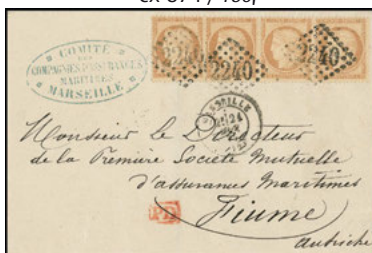 COMITÉ
DES
COMPAGNIES D'ASSURANCES
MARITIMES
MARSEILLE
2240
2240
2240
MARSEILLE
24
Monsieur le Directeur
de la Première Societé Mutuelle
d'assurances Maritimes
Fiume
Autriche
PD